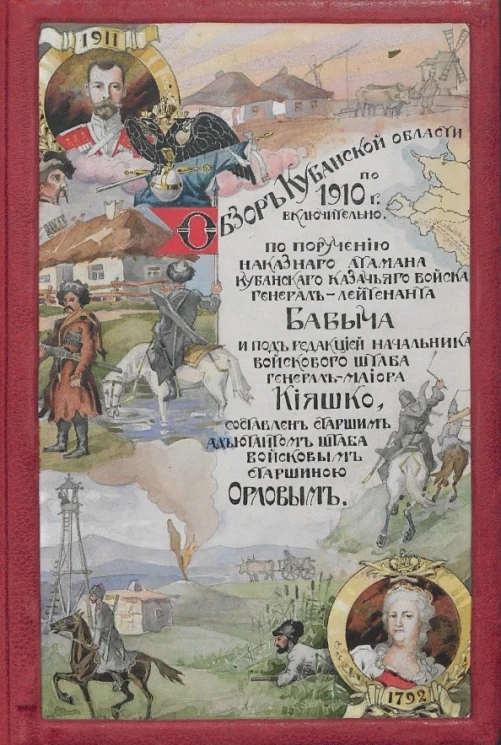 1911
Обзоръ Кубанской области
по
1910 г.
включительно.
по порученію
наказнаго атамана
Кубанскаго казачьяго войска
генералъ-лейтенанта
Бабыча
и подъ редакціей начальника
войскового штаба
генералъ-маіора
Кіяшко,
составленъ старшимъ
адъютантомъ штаба
войсковымъ
старшиною
Орловымъ.
1792